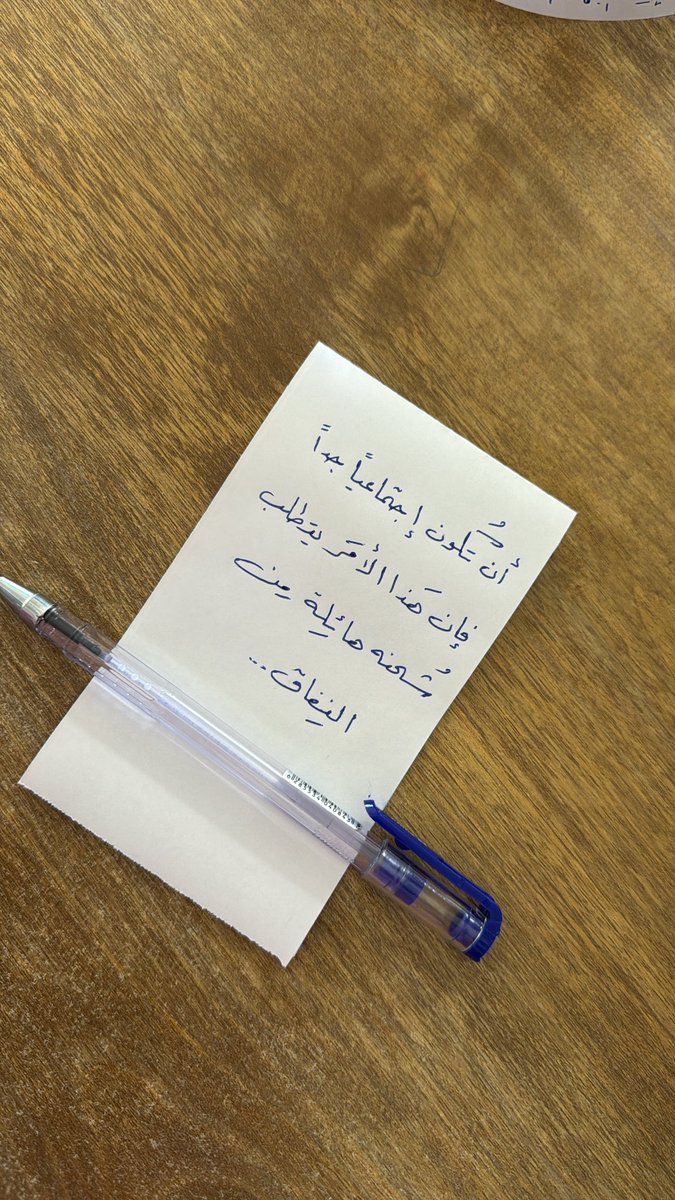 أن تَكُون إجتماعياً جداً
فإن هَذا الأمَر يتطلب
شُحنه هائِلة مِن
النِفاق...